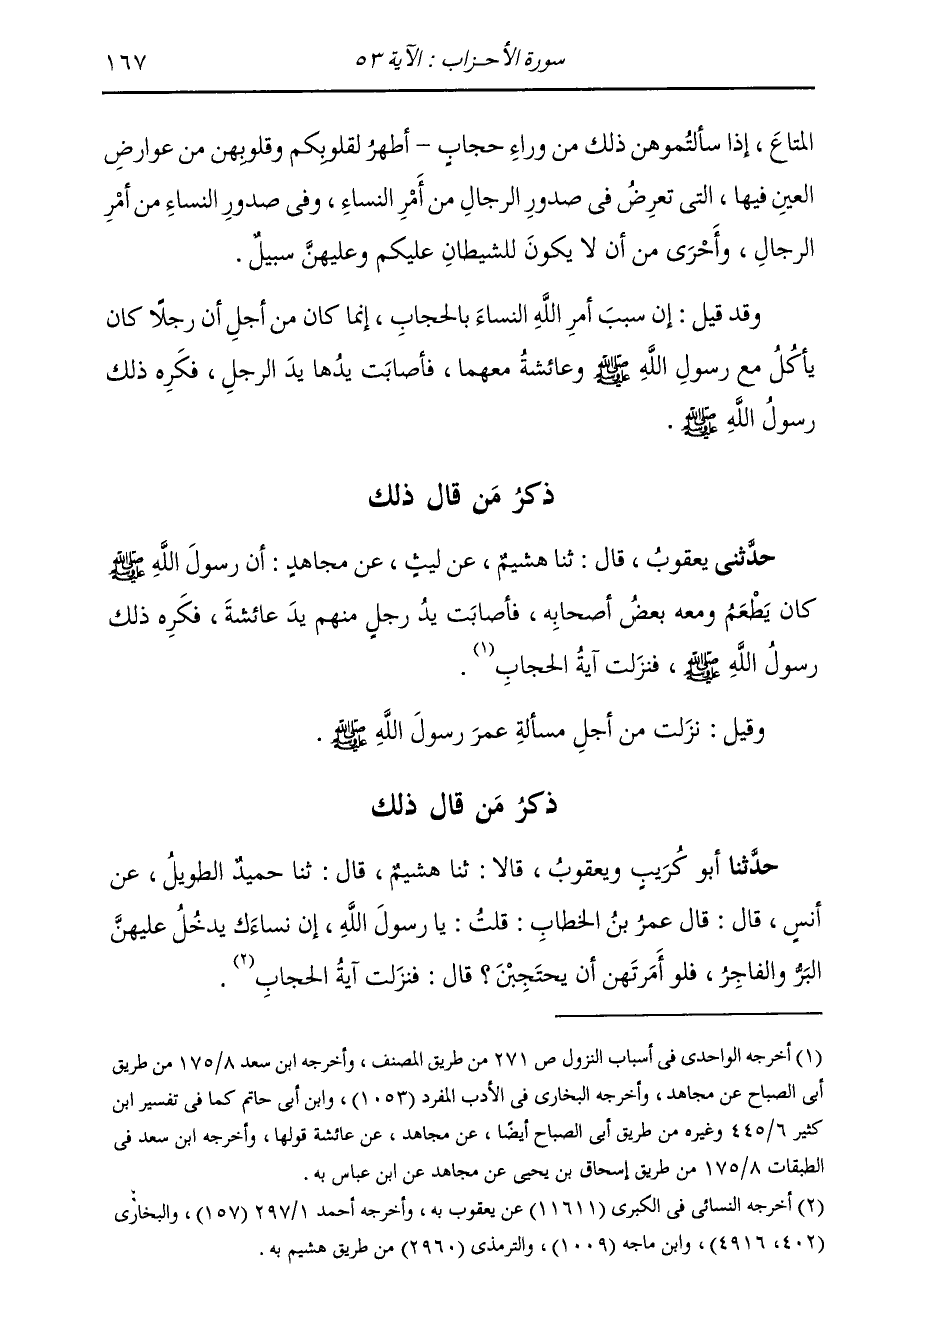 سورة الأحزاب : الآية ٥٣
١٦٧
المتاعَ ، إذا سألتُموهن ذلك من وراءِ حجابٍ – أطهرُ لقلوبِكم وقلوبِهن من عوارضِ
العينِ فيها ، التى تعرِضُ فى صدورِ الرجالِ من أَمْرِ النساءِ ، وفى صدورِ النساءِ من أمْرِ
الرجالِ ، وأَحْرَى من أن لا يكونَ للشيطانِ عليكم وعليهنَّ سبيلٌ .
وقد قيل : إن سببَ أمرِ اللَّهِ النساءَ بالحجابِ ، إنما كان من أجلِ أن رجلًا كان
يأكُلُ مع رسولِ اللَّهِ ﷺ وعائشةُ معهما ، فأصابَت يدُها يدَ الرجلِ ، فكَرِه ذلك
رسولُ اللَّهِ ﷺ .
ذكرُ مَن قال ذلك
حدَّثنى يعقوبُ ، قال : ثنا هشيمٌ ، عن ليثٍ ، عن مجاهدٍ : أن رسولَ اللَّهِ ﷺ
كان يَطْعَمُ ومعه بعضُ أصحابِه ، فأصابَت يدُ رجلٍ منهم يدَ عائشةَ ، فكَرِه ذلك
رسولُ اللَّهِ ﷺ ، فنزَلت آيةُ الحجابِ(١) .
وقيل : نزَلت من أجلِ مسألةِ عمرَ رسولَ اللَّهِ ﷺ .
ذكرُ مَن قال ذلك
حدَّثنا أبو كُرَيبٍ ويعقوبُ ، قالا : ثنا هشيمٌ ، قال : ثنا حميدٌ الطويلُ ، عن
أنسٍ ، قال : قال عمرُ بنُ الخطابِ : قلتُ : يا رسولَ اللَّهِ ، إن نساءَك يدخُلُ عليهنَّ
البَرُّ والفاجِرُ ، فلو أَمَرتَهن أن يحتَجِبْنَ ؟ قال : فنزَلت آيةُ الحجابِ(٢) .
(١) أخرجه الواحدى فى أسباب النزول ص ٢٧١ من طريق المصنف ، وأخرجه ابن سعد ١٧٥/٨ من طريق
أبى الصباح عن مجاهد ، وأخرجه البخارى فى الأدب المفرد (١٠٥٣) ، وابن أبى حاتم كما فى تفسير ابن
كثير ٤٤٥/٦ وغيره من طريق أبى الصباح أيضًا ، عن مجاهد ، عن عائشة قولها ، وأخرجه ابن سعد فى
الطبقات ١٧٥/٨ من طريق إسحاق بن يحيى عن مجاهد عن ابن عباس به .
(٢) أخرجه النسائى فى الكبرى (١١٦١١) عن يعقوب به ، وأخرجه أحمد ٢٩٧/١ (١٥٧) ، والبخارى
(٤٠٢، ٤٩١٦) ، وابن ماجه (١٠٠٩) ، والترمذى (٢٩٦٠) من طريق هشيم به .